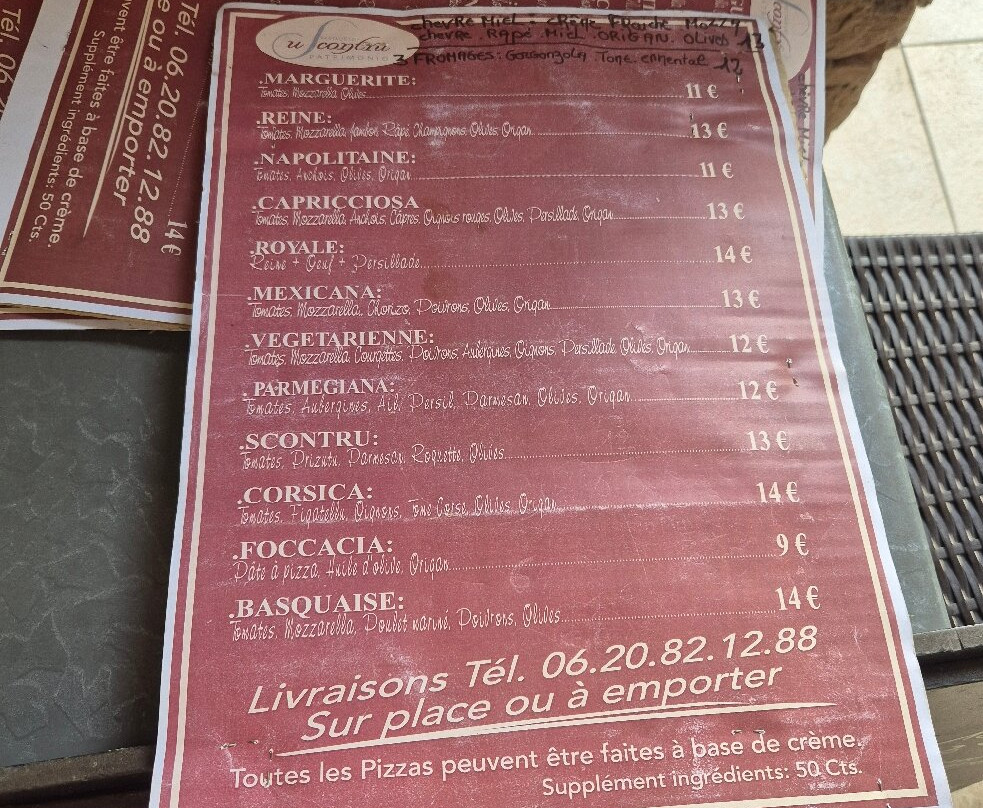 U Scontru
PATRIMONIO
Chevre Miel : CRème FRaiche Mozza
chevre. RAPé. Miel. ORIGAN. Olives 13
3 FROMAGES: Gorgonzola. Tome. emmental 12
.MARGUERITE:
Tomates, Mozzarella, Olives 11 €
.REINE:
Tomates, Mozzarella, Jambon, Râpé, Champignons, Olives, Origan 13 €
.NAPOLITAINE:
Tomates, Anchois, Olives, Origan 11 €
.CAPRICCIOSA
Tomates, Mozzarella, Anchois, Câpres, Oignons rouges, Olives, Persillade, Origan 13 €
.ROYALE:
Reine + Oeuf + Persillade 14 €
.MEXICANA:
Tomates, Mozzarella, Chorizo, Poivrons, Olives, Origan 13 €
.VEGETARIENNE:
Tomates, Mozzarella, Courgettes, Poivrons, Aubergines, Oignons, Persillade, Olives, Origan 12 €
.PARMEGIANA:
Tomates, Aubergines, Ail, Persil, Parmesan, Olives, Origan 12 €
.SCONTRU:
Tomates, Prizutu, Parmesan, Roquette, Olives 13 €
.CORSICA:
Tomates, Figatellu, Oignons, Tome Corse, Olives, Origan 14 €
.FOCCACIA:
Pâte à pizza, Huile d'olive, Origan 9 €
.BASQUAISE:
Tomates, Mozzarella, Poulet mariné, Poivrons, Olives 14 €
Livraisons Tél. 06.20.82.12.88
Sur place ou à emporter
Toutes les Pizzas peuvent être faites à base de crème.
Supplément ingrédients: 50 Cts.
14 €
06.20.82.12.88
ou à emporter
vent être faites à base de crème.
Supplément ingrédients: 50 Cts.
Tél. 06